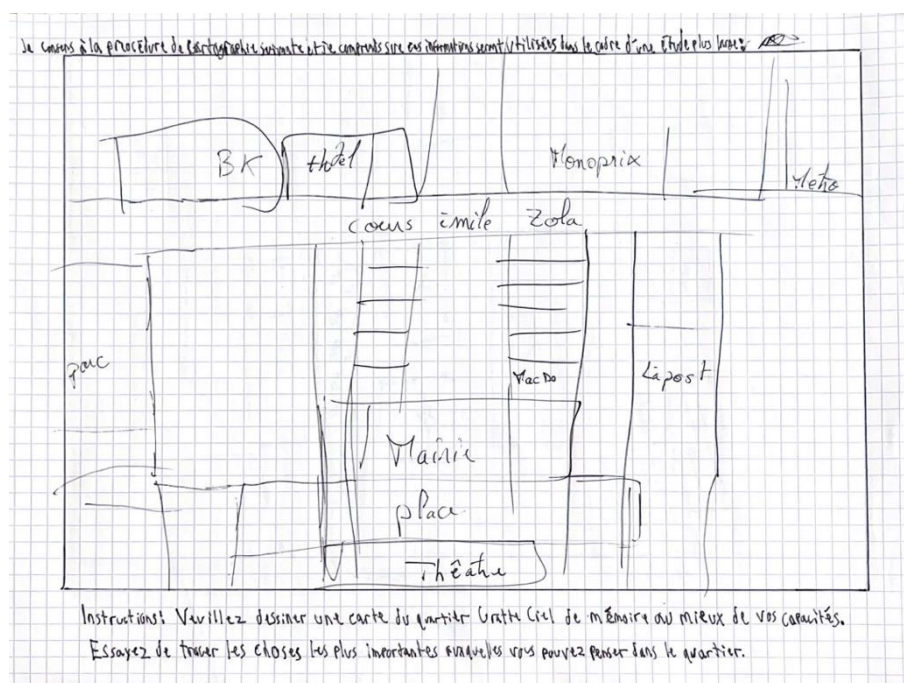 Je consens à la procédure de Cartographie suivante et je comprends que ces informations seront utilisées dans le cadre d'une étude plus large:
BK
thotel
Monoprix
Metro
cours émile Zola
parc
MacDo
La post
Mairie
place
Théatre
Instructions: Veuillez dessiner une carte du quartier Gratte Ciel de mémoire au mieux de vos capacités.
Essayez de tracer les choses les plus importantes auxquelles vous pouvez penser dans le quartier.